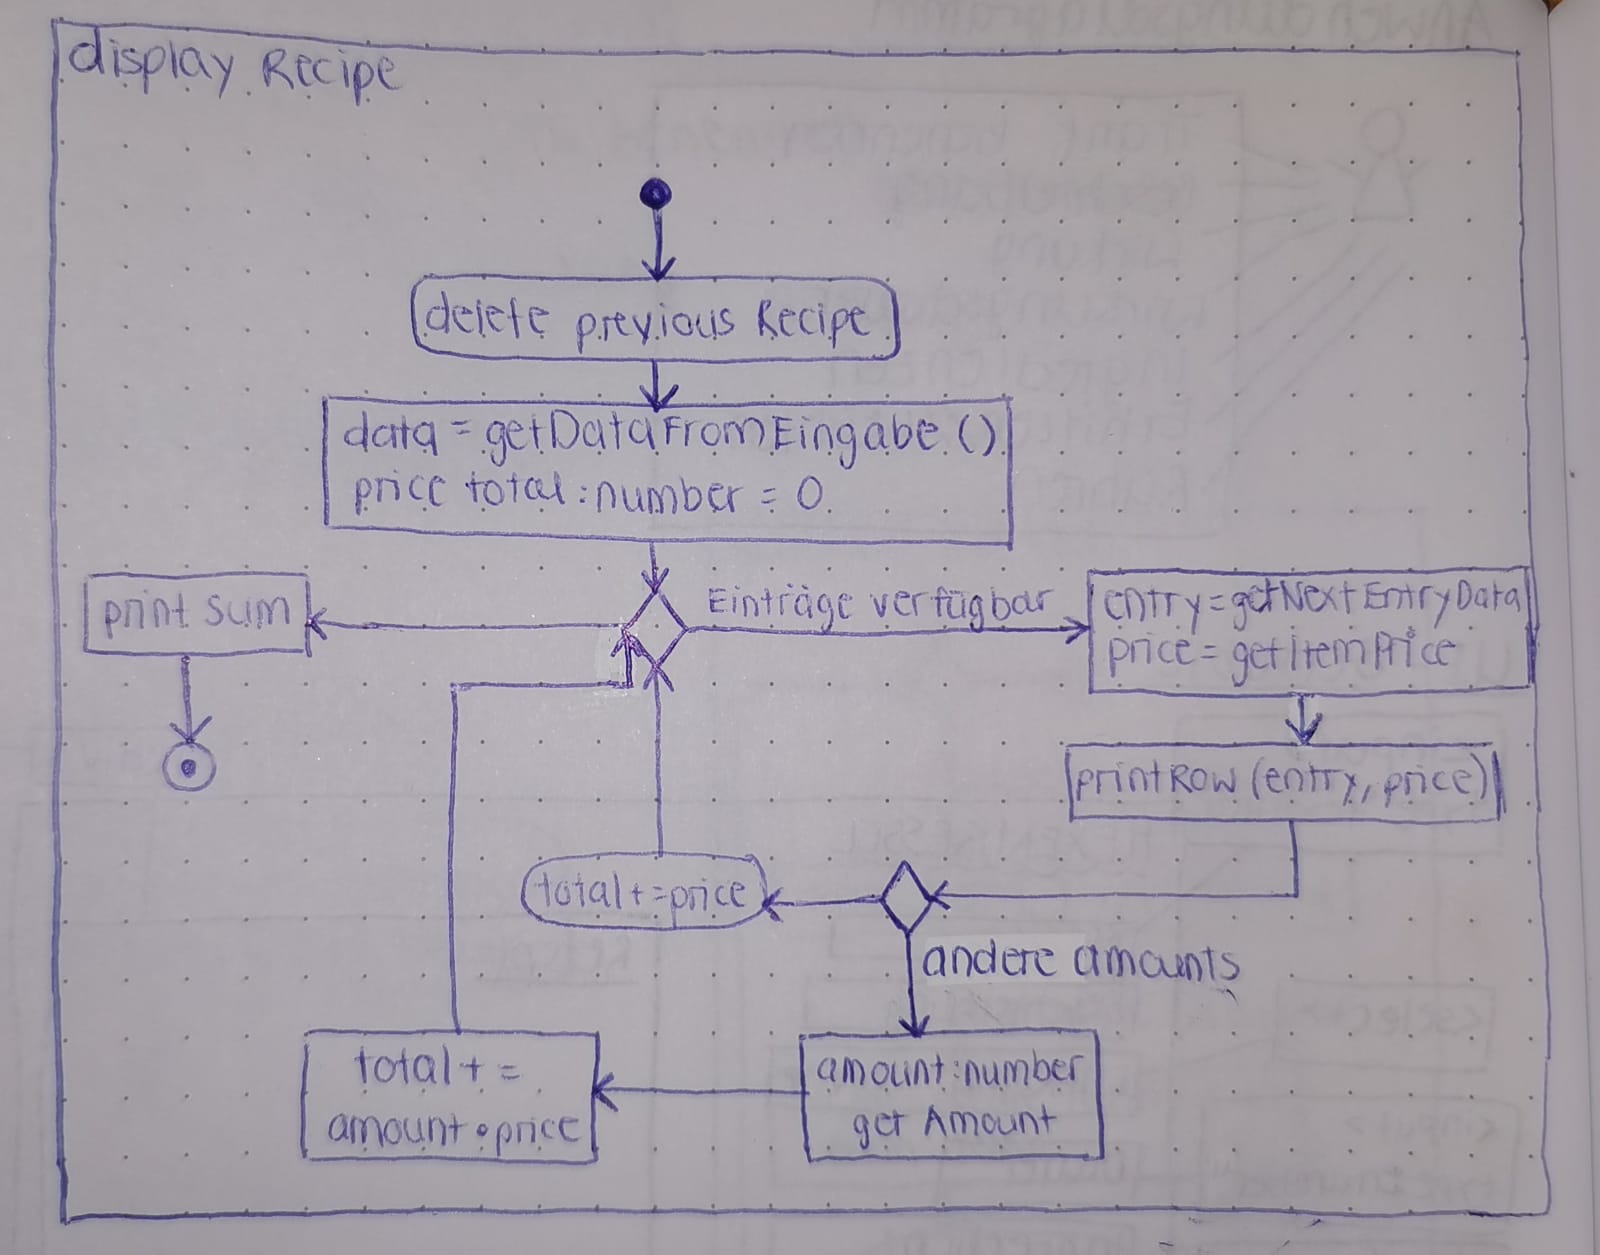 display Recipe
delete previous Recipe
data = getDataFromEingabe ()
price total : number = 0
print sum
Einträge verfügbar
entry = getNextEntryData
price = getItemPrice
printRow (entry, price)
total += price
andere amounts
total + =
amount • price
amount : number
get Amount